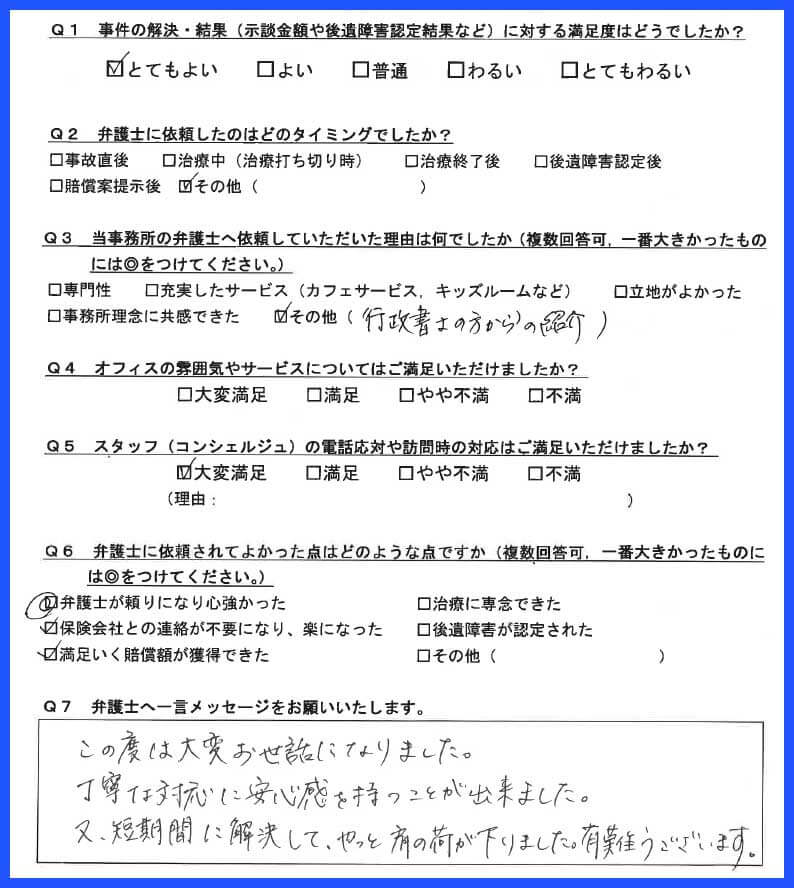 Ｑ１　事件の解決・結果（示談金額や後遺障害認定結果など）に対する満足度はどうでしたか？
☑とてもよい　□よい　□普通　□わるい　□とてもわるい
Ｑ２　弁護士に依頼したのはどのタイミングでしたか？
□事故直後　□治療中（治療打ち切り時）　□治療終了後　□後遺障害認定後
□賠償案提示後　☑その他（　　　）
Ｑ３　当事務所の弁護士へ依頼していただいた理由は何でしたか（複数回答可，一番大きかったもの
には◎をつけてください。）
□専門性　□充実したサービス（カフェサービス，キッズルームなど）　□立地がよかった
□事務所理念に共感できた　☑その他（行政書士の方から）の紹介）
Ｑ４　オフィスの雰囲気やサービスについてはご満足いただけましたか？
□大変満足　□満足　□やや不満　□不満
Ｑ５　スタッフ（コンシェルジュ）の電話応対や訪問時の対応はご満足いただけましたか？
☑大変満足　□満足　□やや不満　□不満
（理由：　　　）
Ｑ６　弁護士に依頼されてよかった点はどのような点ですか（複数回答可，一番大きかったものに
は◎をつけてください。）
◎☑弁護士が頼りになり心強かった　□治療に専念できた
☑保険会社との連絡が不要になり、楽になった　□後遺障害が認定された
☑満足いく賠償額が獲得できた　□その他（　　　）
Ｑ７　弁護士へ一言メッセージをお願いいたします。
この度は大変お世話になりました。
丁寧な対応に安心感を持つことが出来ました。
又、短期間に解決して、やっと肩の荷が下りました。有難うございます。